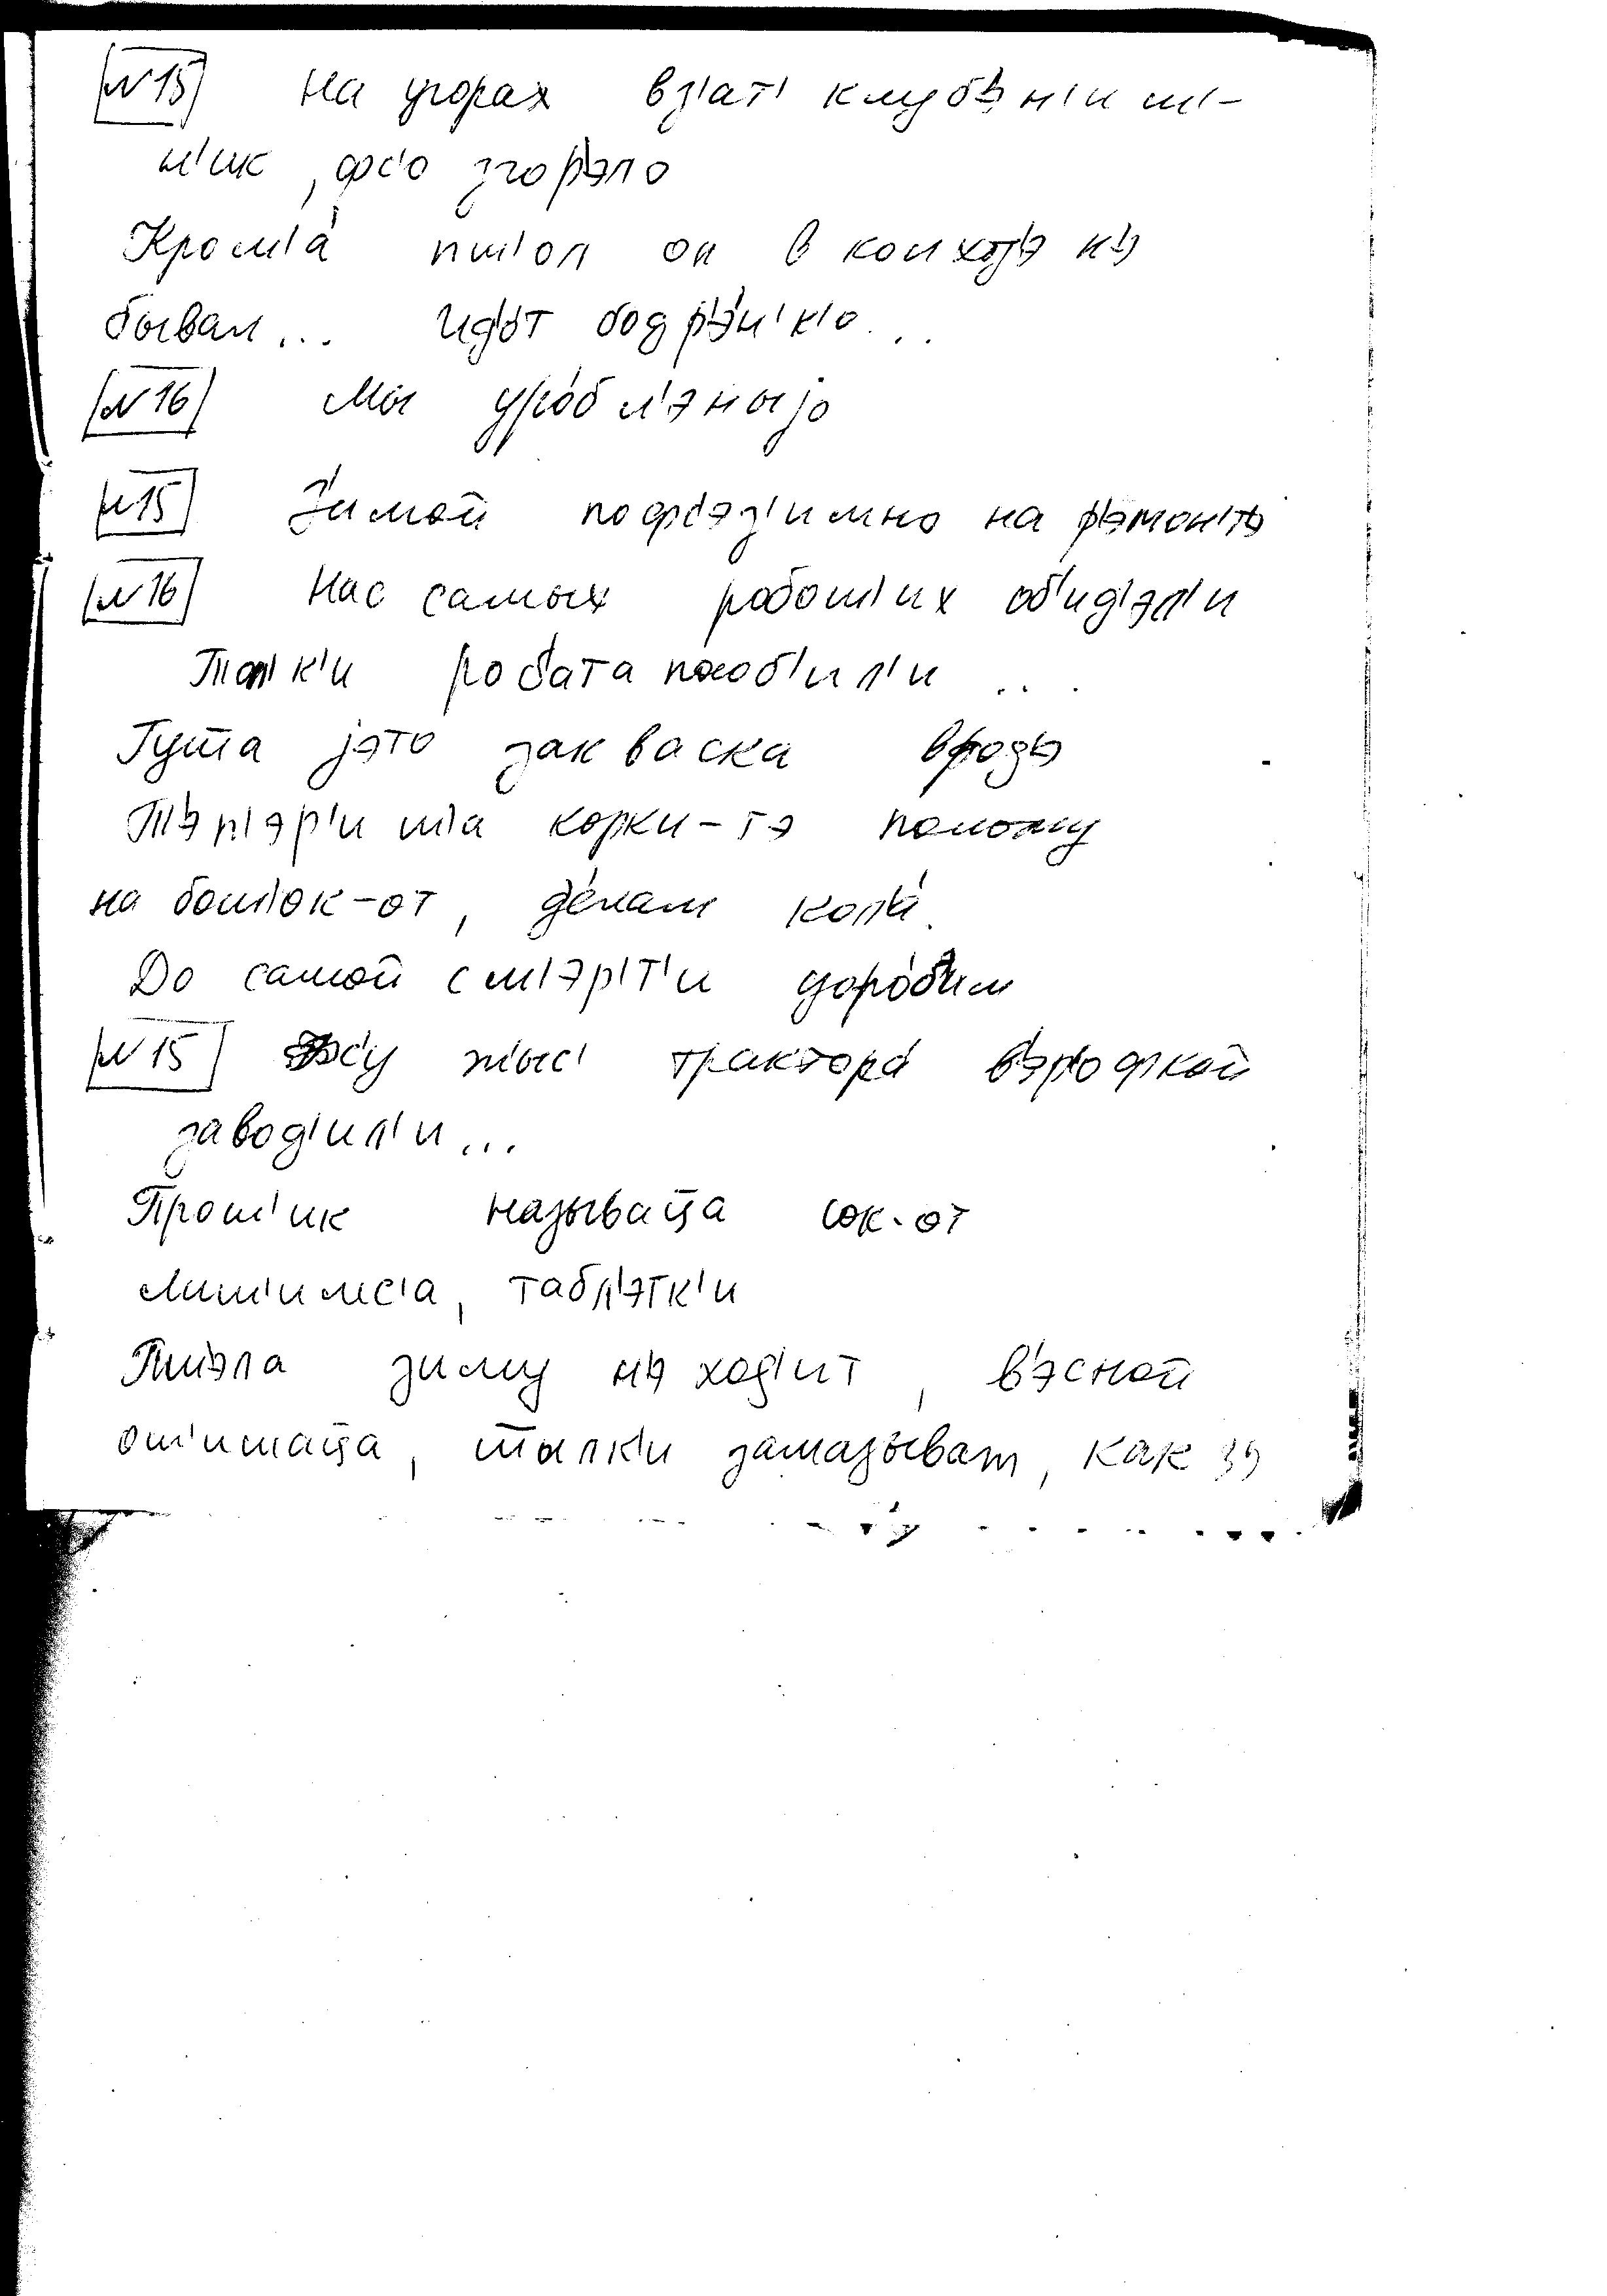 №15 на угорах вз'ат' клуб'эн'и ш'-
н'ик, фс'о згор'эло
Кром'а́ пш'ол он в конхоз'э н'э
бывал... ид'о́т бодр'э́н'к'о...
№16 мы уро́бл'эныjо
№15 З'имой поф'с'эз'имно на р'эмон'т'э
№16 нас самых робош'их об'ид'эл'и
робата
Гуш̅а jэто закваска врод'э
Т'эп'эр'и ш'а корки-тэ положу
на бош'ок-от, д'е́лам
До самой см'эр'т'и доро́б'им
№15 жыс' трактора́ в'эр'офкой
завод'ил'и...
Прош'ик называц̅а сок-от
л'иш'имс'а, табл'этк'и
Пш'эла зиму н'э ход'ит, в'эсной
ош'ишац̅а, замазыват, как